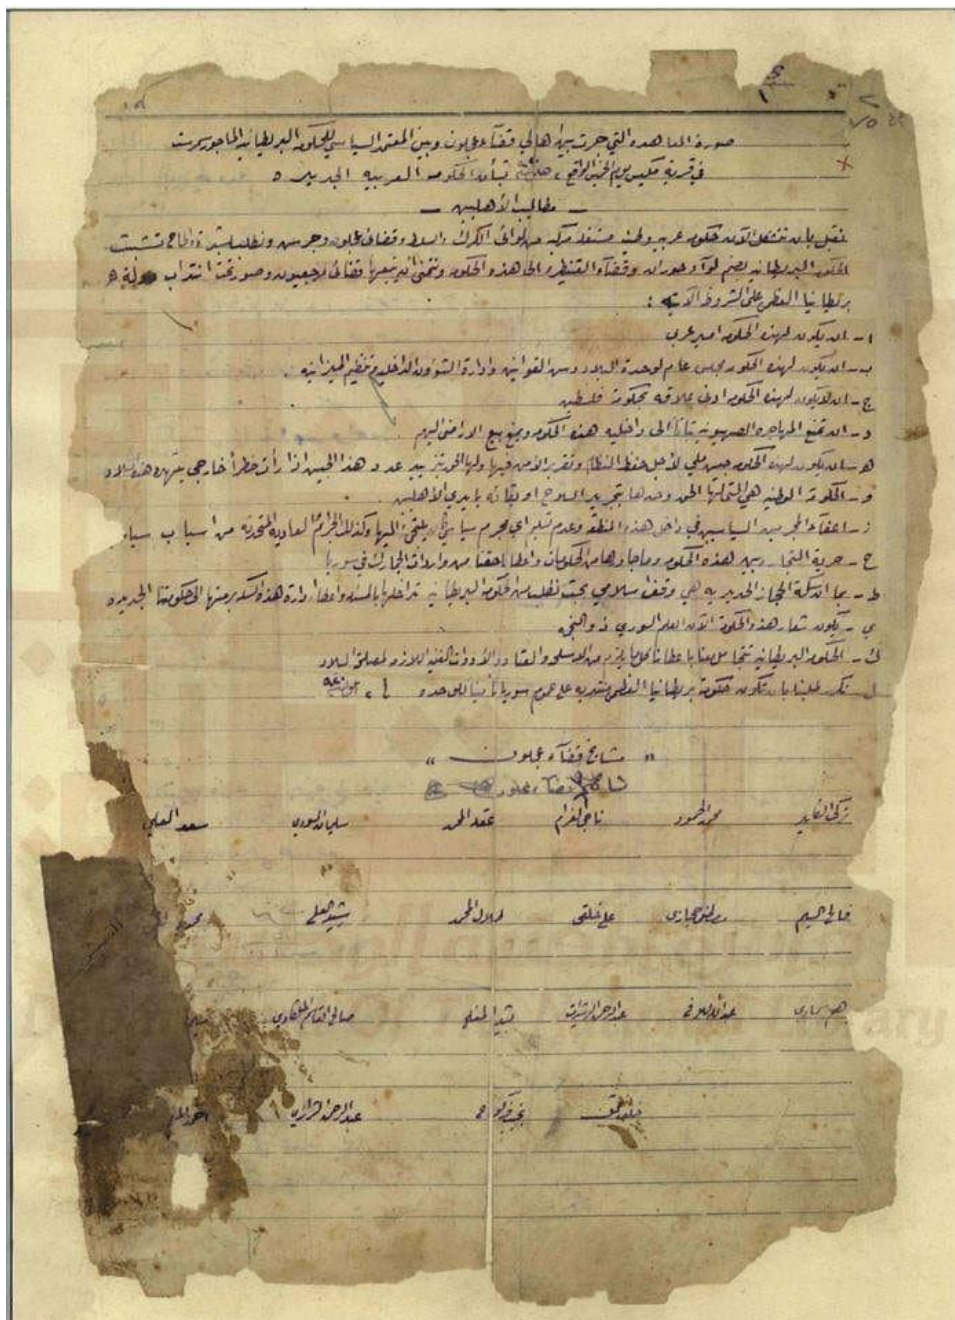 صورة المعاهده التي جرت بين أهالي قضاء عجلون وبين المعتمد السياسي للحكومه البريطانيه الماجور سمرست
في قرية مكيس يوم الخميس الواقع بشأن الحكومه العربيه الجديده
ـ مطاليب الأهلين ـ
نقبل بان تتشكل الآن حكومه عربيه وطنيه مستقله مركبه من لوائي الكرك والسلط وقضائي عجلون وجرش ونطلب بشدة والحاح تشبث
الحكومه البريطانيه بضم لوآء حوران وقضآء القنيطره الى هذه الحكومه ونتمنى ان يتبعها قضائي مرجعيون وصور تحت انتداب دولة
بريطانيا العظمى على الشروط الآتيه :
ا ـ ان يكون لهذه الحكومه امير عربي
ب ـ ان يكون لهذه الحكومه مجلس عام لوحدة البلاد وسن القوانين وادارة الشؤون الداخليه وتنظيم الميزانيه .
ج ـ ان لا يكون لهذه الحكومه ادنى علاقه بحكومة فلسطين
د ـ ان تمنع المهاجره الصهيونيه بتاتاً الى داخليه هذه الحكومه ويمنع بيع الاراضي اليهم .
ه ـ ان يكون لهذه الحكومه جيش ملي لأجل حفظ النظام وتقرير الأمن فيها ولها الحق تزييد عدد هذا الجيش اذا رأت خطراً خارجي يتهدد هذه البلاد
و ـ الحكومة الوطنيه هي التي لها الحق وحدها بتجريد السلاح او بقائه بايدي الأهلين .
ز ـ اعفاء المجرمين السياسيين في داخل هذه المنطقه وعدم تسليم اي مجرم سياسي يلتجئ اليها وكذلك الجرائم العاديه المتحدثه من اسباب سياسيه
ح ـ حرية التجاره بين هذه الحكومه وما جاورها من الحكومات واعطائنا حقنا من واردات الجمارك في سوريا
ط ـ بما ان سكة الحجاز الحديديه هي وقف اسلامي بحت نطلب من الحكومه البريطانيه تداخلها بالمسئله واعطا ادارة هذه السكه برمتها الى حكومتنا الجديده
ي ـ يكون شعار هذه الحكومة الآن العلم السوري ذو النجمه
ك ـ الحكومه البريطانيه تتعامل معنا باعطائنا كل ما يلزم من الاسلحه والعتاد والأدوات الفنيه اللازمه لمصلحة البلاد
ل ـ نكرر طلبنا بان تكون حكومة بريطانيا العظمى منتدبه على عموم سوريا تأميناً للوحده
" مشايخ قضآء عجلون "
تركي الفايد محمد الحمود ناجي العزام عقله المحمد سليمان السودي سعد العلي
فالح السليم مصطفى حجازي علي خلقي طلال المحمد رشيد العلي محمود
عبد الرحمن الرشيدات صالح القاسم الهنداوي
نجيب فركوح